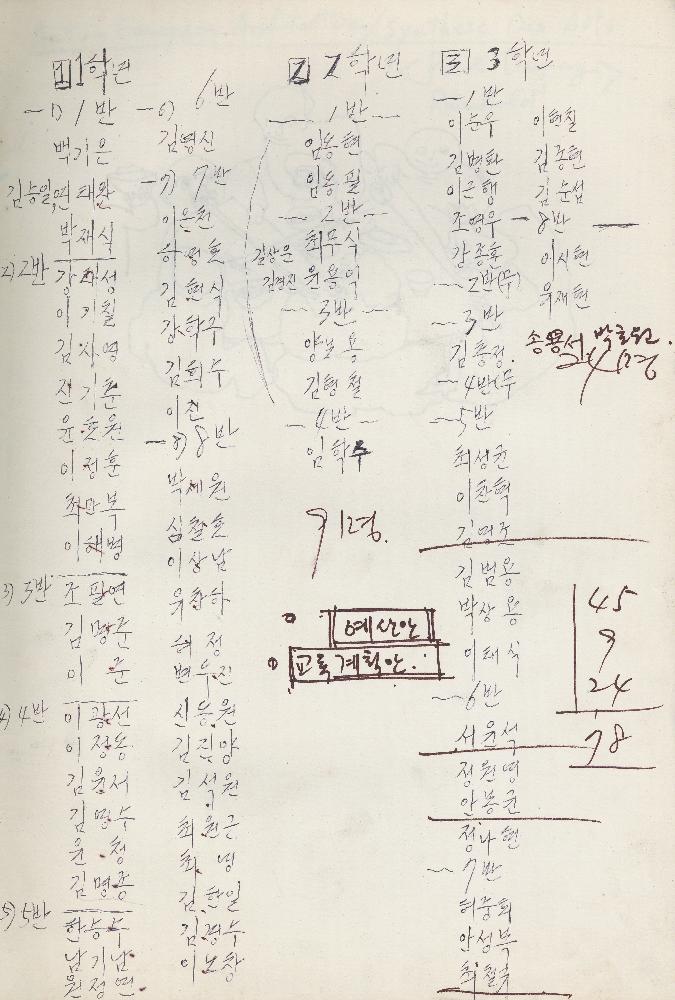 1 1학년
1) 1반
백기은
김승일, 연태완
박재식
2) 2반 강대성
이기칠
김지영
진기훈
윤호원
이정훈
최만복
이해명
3) 3반 조필연
김명준
이준
4) 4반 이광선
이정농
김윤서
김명수
윤청
김명종
5) 5반 한승수
남기남
원정연
6) 6반
김영신
7) 7반
이은천
하영호
김현식
강학구
김희수
이찬
8) 8반
박세원
심찰호
이상남
허정
변두진
신동원
김진양
김석원
최원근
최녕
김한일
김경수
이노창
2 2학년
1반
임농현
임농필
2반
길상은 최두식
김경진 윤용익
3반
양보용
김형철
4반
임학수
9 12명.
예산안
교육계획안.
3 3학년
1반
이순우
김병환
이근행
조영우
강종훈
2반(무)
3반
김종정.
4반(무
5반
최성권
이찬혁
김영조
김범용
박상용
이태식
6반
서윤석
정원영
안봉균
정나현
7반
허중회
안성북
최철호
이현칠
김종현
김문섭
8반
이시현
유재현
송용석
24명
45
9
24
78